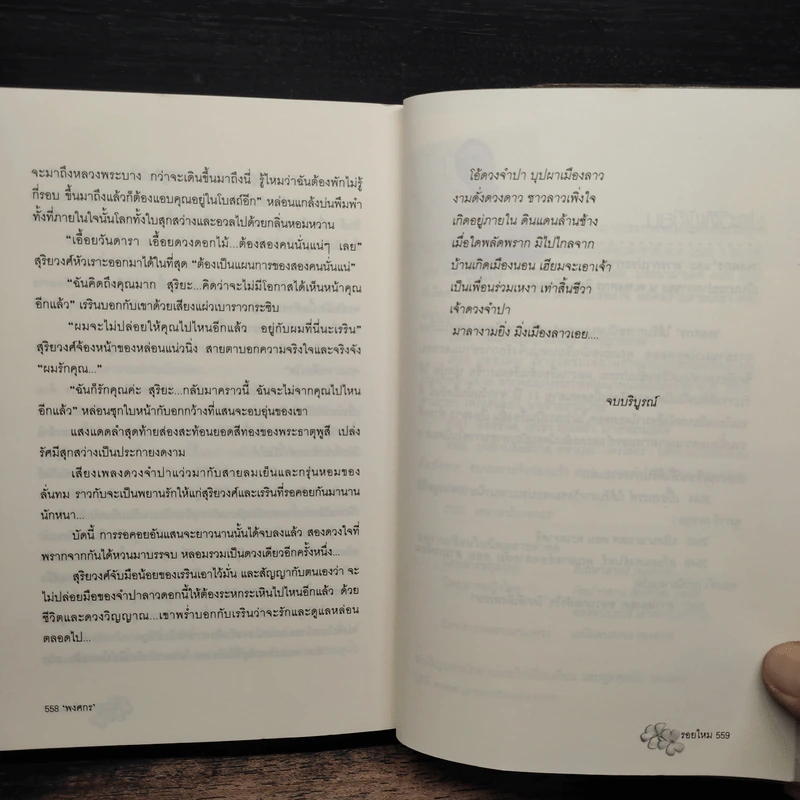 จะมาถึงหลวงพระบาง กว่าจะเดินขึ้นมาถึงนี่ รู้ไหมว่าฉันต้องพักไม่รู้
กี่รอบ ขึ้นมาถึงแล้วก็ต้องแอบคุณอยู่ในโบสถ์อีก" หล่อนแกล้งบ่นพึมพำ
ทั้งที่ภายในใจนั้นโลกทั้งใบสุกสว่างและอวลไปด้วยกลิ่นหอมหวาน
"เอื้อยวันดารา เอื้อยดวงดอกไม้...ต้องสองคนนั่นแน่ๆ เลย"
สุริยวงศ์หัวเราะออกมาได้ในที่สุด "ต้องเป็นแผนการของสองคนนั่นแน่"
"ฉันคิดถึงคุณมาก สุริยะ...คิดว่าจะไม่มีโอกาสได้เห็นหน้าคุณ
อีกแล้ว" เรรินบอกกับเขาด้วยเสียงแผ่วเบาราวกระซิบ
"ผมจะไม่ปล่อยให้คุณไปไหนอีกแล้ว อยู่กับผมที่นี่นะเรริน"
สุริยวงศ์จ้องหน้าของหล่อนแน่วนิ่ง สายตาบอกความจริงใจและจริงจัง
"ผมรักคุณ..."
"ฉันก็รักคุณค่ะ สุริยะ...กลับมาคราวนี้ ฉันจะไม่จากคุณไปไหน
อีกแล้ว" หล่อนซุกใบหน้ากับอกกว้างที่แสนจะอบอุ่นของเขา
แสงแดดลำสุดท้ายส่องสะท้อนยอดสีทองของพระธาตุพูสี เปล่ง
รัศมีสุกสว่างเป็นประกายงดงาม
เสียงเพลงดวงจำปาแว่วมากับสายลมเย็นและกรุ่นหอมของ
ลั่นทม ราวกับจะเป็นพยานรักให้แก่สุริยวงศ์และเรรินที่รอคอยกันมานาน
นักหนา...
บัดนี้ การรอคอยอันแสนจะยาวนานนั้นได้จบลงแล้ว สองดวงใจที่
พรากจากกันได้หวนมาบรรจบ หลอมรวมเป็นดวงเดียวอีกครั้งหนึ่ง...
สุริยวงศ์จับมือน้อยของเรรินเอาไว้มั่น และสัญญากับตนเองว่า จะ
ไม่ปล่อยมือของจำปาลาวดอกนี้ให้ต้องระหกระเหินไปไหนอีกแล้ว ด้วย
ชีวิตและดวงวิญญาณ...เขาพร่ำบอกกับเรรินว่าจะรักและดูแลหล่อน
ตลอดไป...
558 'พงศกร'
โอ้ดวงจำปา บุปผาเมืองลาว
งามดั่งดวงดาว ชาวลาวเพิ่งใจ
เกิดอยู่ภายใน ดินแดนล้านช้าง
เมื่อใดพลัดพราก มิไปไกลจาก
บ้านเกิดเมืองนอน เฮียมจะเอาเจ้า
เป็นเพื่อนร่วมเหงา เท่าสิ้นชีวา
เจ้าดวงจำปา
มาลางามยิ่ง มิ่งเมืองลาวเอย....
จบบริบูรณ์
รอยไหม 559